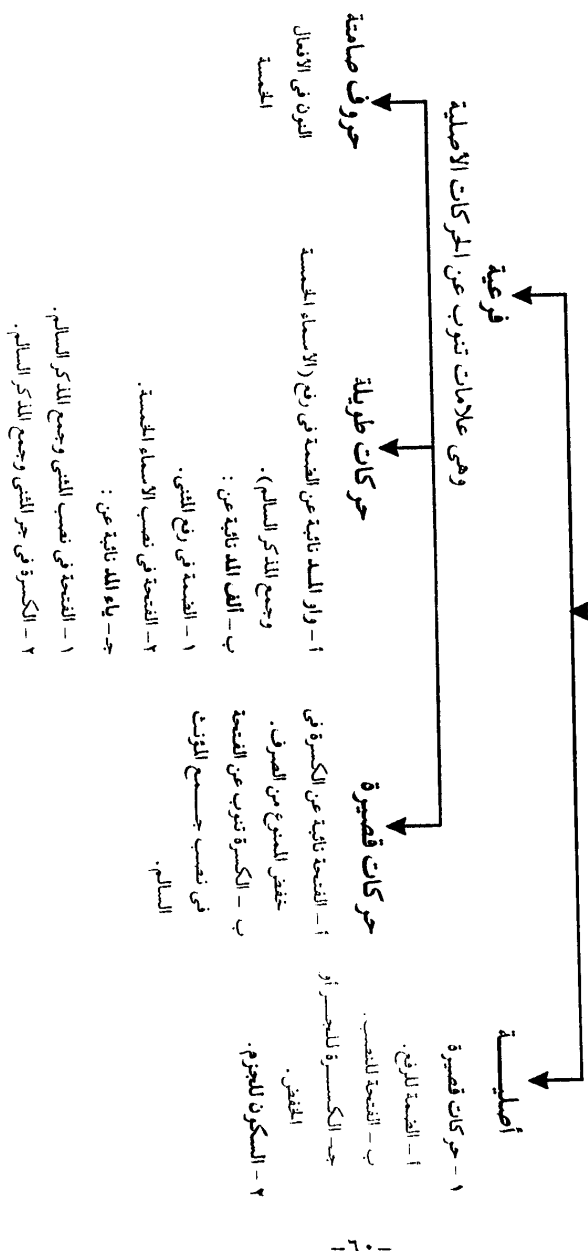 أصليـــــة
١ - حركات قصيرة
أ - الضمة للرفع.
ب - الفتحة للنصب.
جـ - الكسـرة للجـر أو
الخفض.
٢ - السكون للجزم.
فرعية
وهى علامات تنوب عن الحركات الأصلية
حركات قصيرة
أ - الفتحة نائبة عن الكسرة فى
خفض الممنوع من الصرف.
ب - الكسرة تنوب عن الفتحة
فى نصب جـمـع المؤنث
السالم.
حركات طويلة
أ - واو المـد نائبة عن الضمة فى رفع (الاسماء الخمسة
وجمع المذكر السالم).
ب - ألف المد نائبة عن :
١ - الضمة فى رفع المثنى.
٢ - الفتحة فى نصب الاسماء الخمسة.
جـ - ياء المد نائبة عن :
١ - الفتحة فى نصب المثنى وجمع المذكر السالم.
٢ - الكسرة فى جر المثنى وجمع المذكر السالم.
حروف صامتة
النون فى الافعال
الخمسة